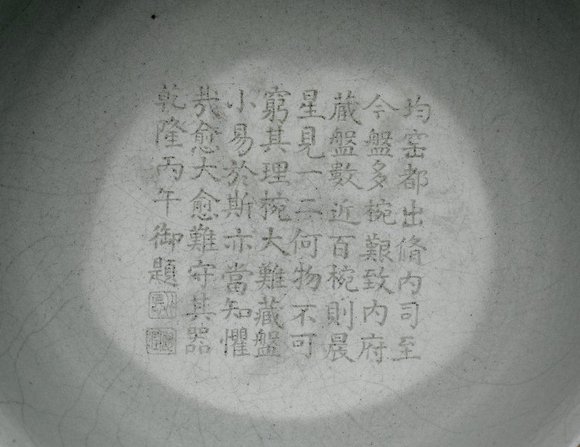 均窑都出脩内司至
今盤多椀艱致内府
藏盤數近百椀則晨
星見一二何物不可
窮其理椀大難藏盤
小易於斯亦當知懼
哉愈大愈難守其器
乾隆丙午御題